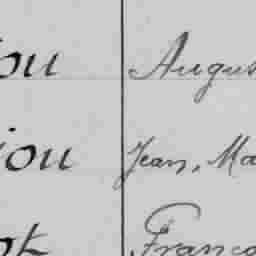 ou Augus
iou Jean, Ma
ot Franço